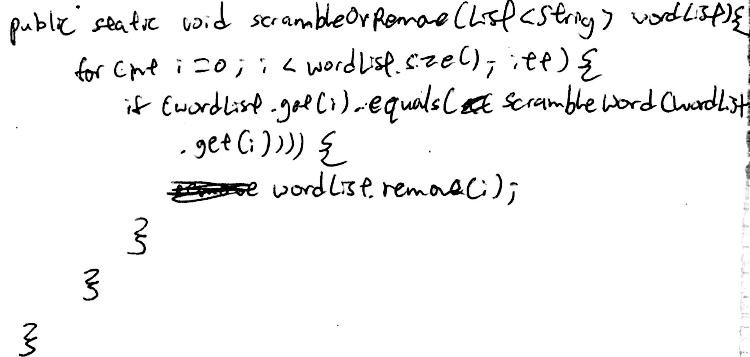 public static void scrambleOrRemove(List<String> wordList){
for (int i=0; i < wordList.size(); i++) {
if (wordList.get(i).equals(scrambleWord(wordList
.get(i)))) {
wordList.remove(i);
}
}
}